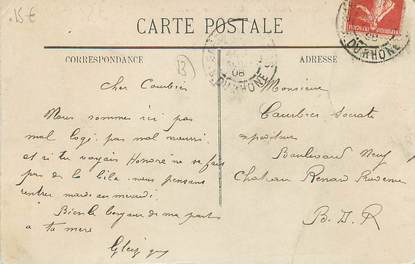 15 €
CARTE POSTALE
CORRESPONDANCE
ADRESSE
13
Cher
Nous sommes ici pas
mal logé pas mal nourri
et si tu voyais Honoré ne se fais
pas de la bile nous pensons
rentrer mardi ou mercredi
Bien le bonjour de ma part
a ta mère
Monsieur
Boulevard Neuf
Chateau Renard
B. D. R
08
DU RHONE